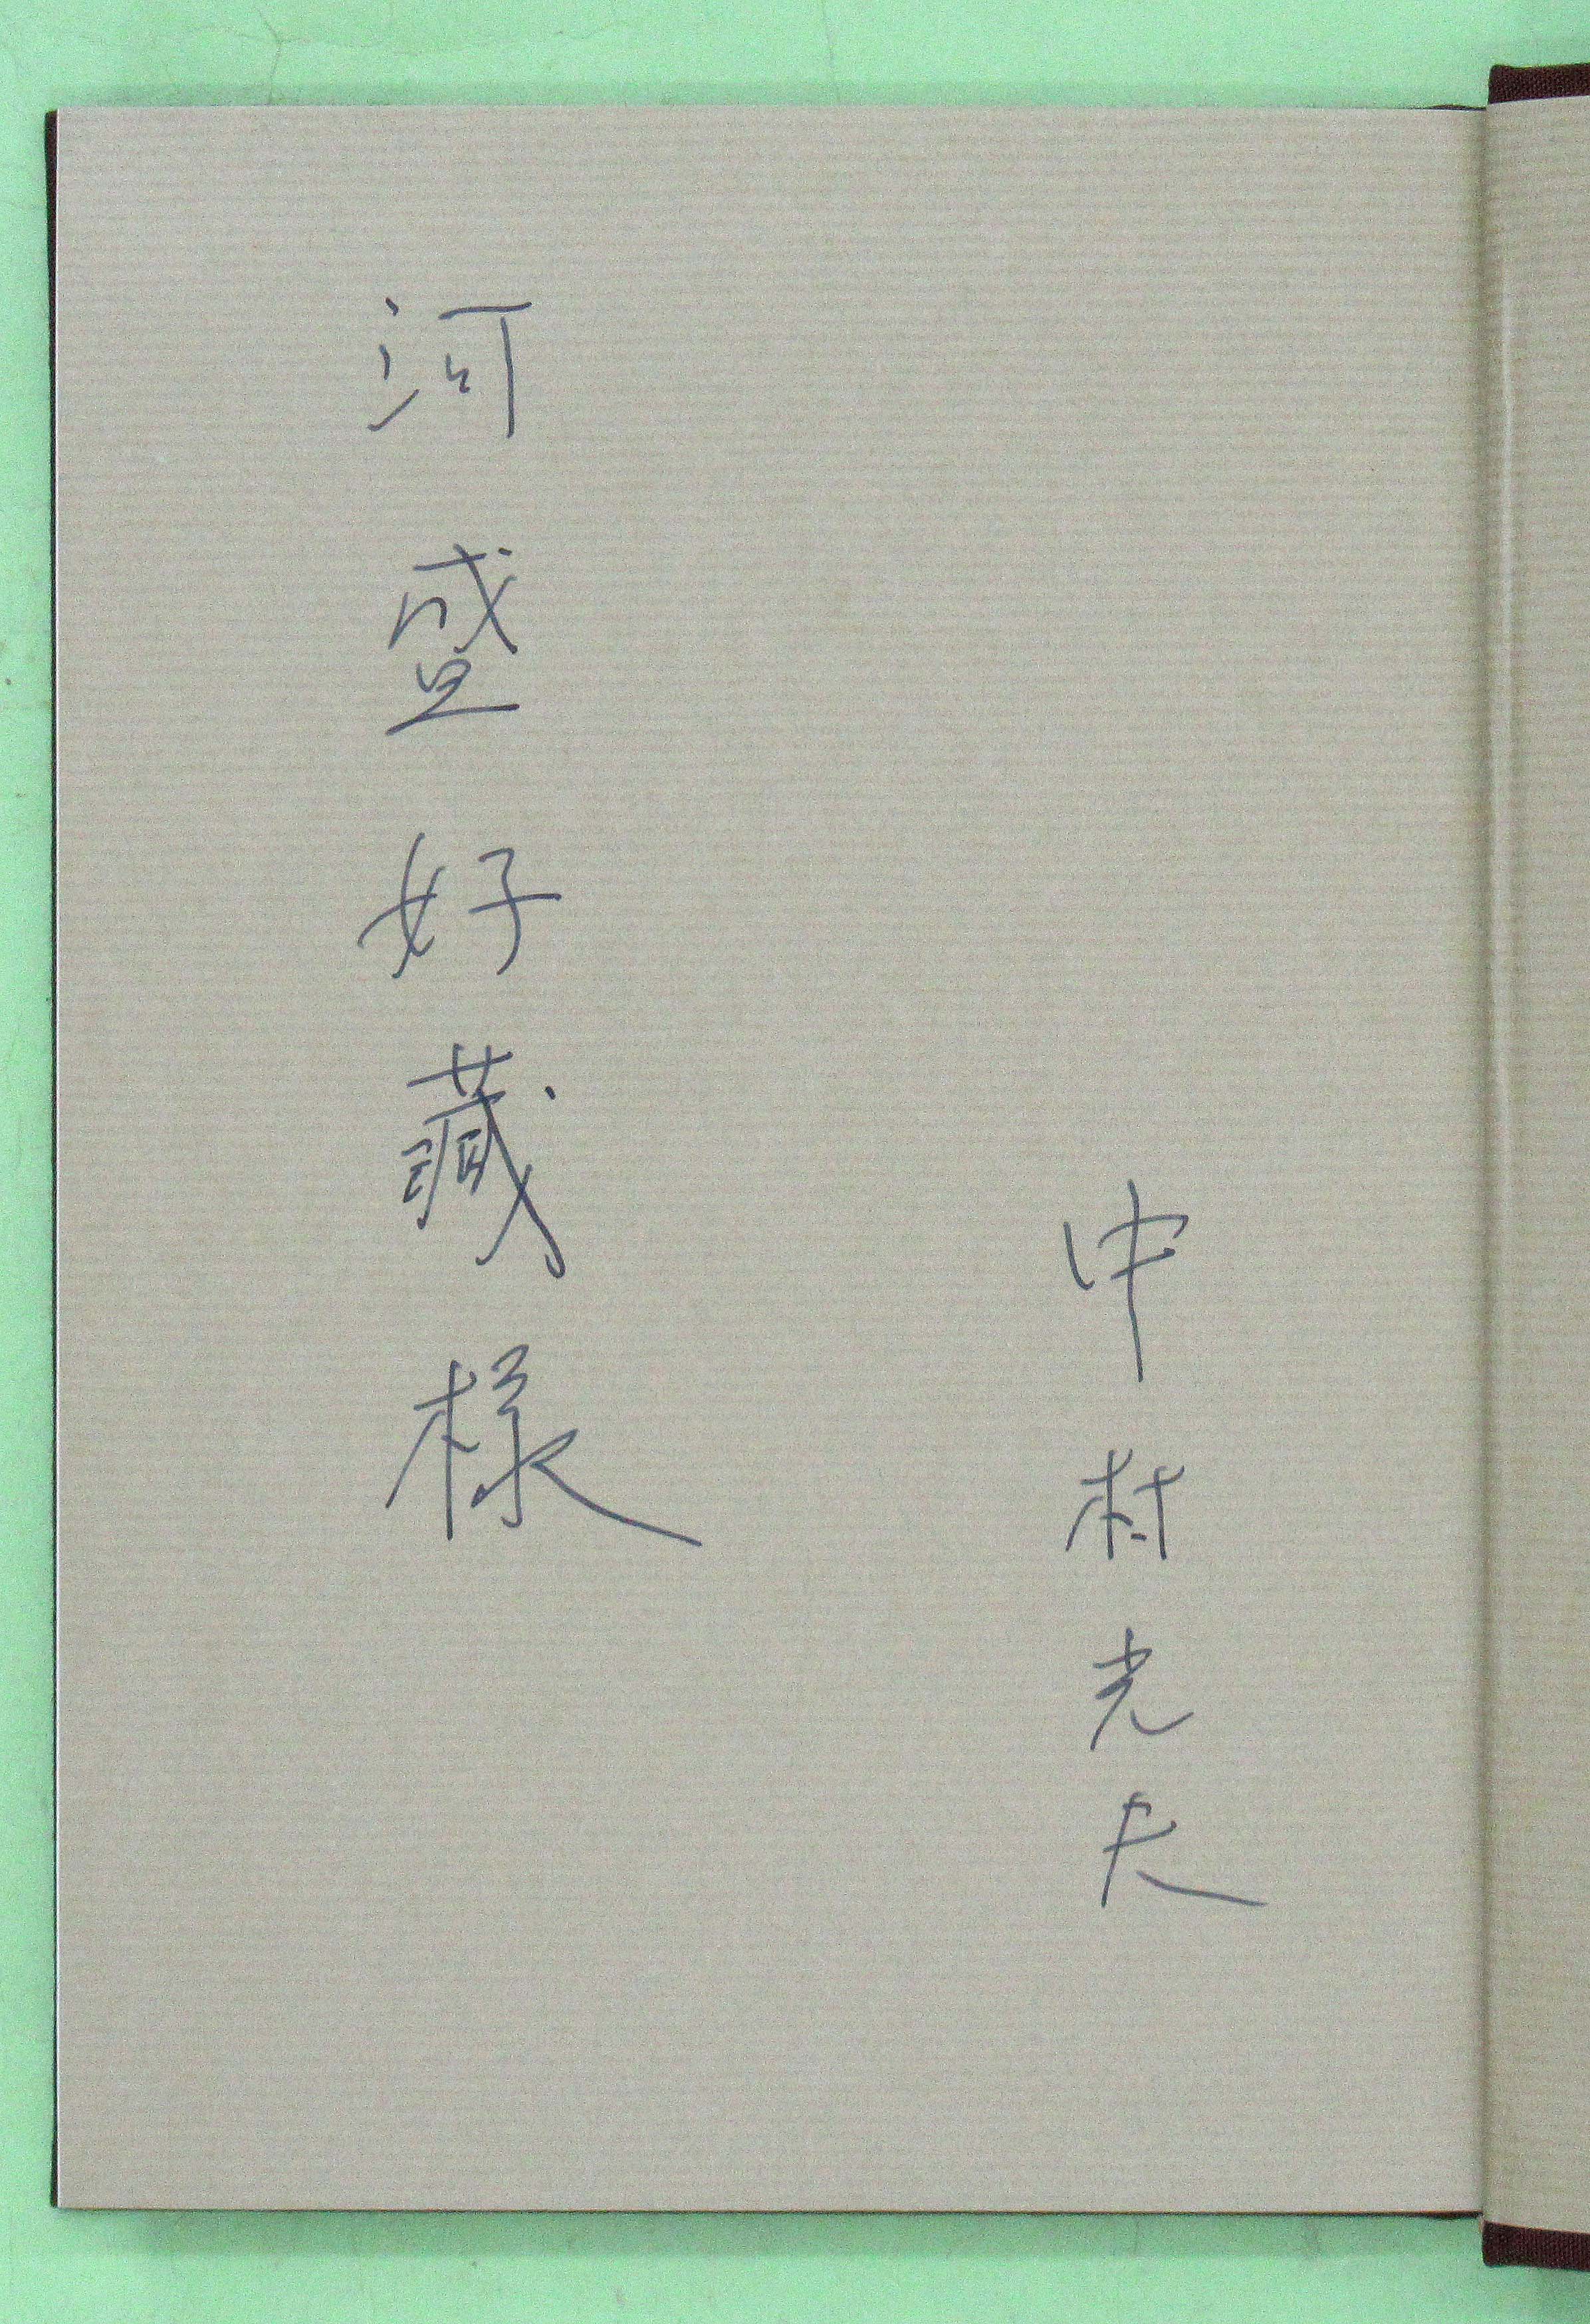 中村光夫
河盛好藏様